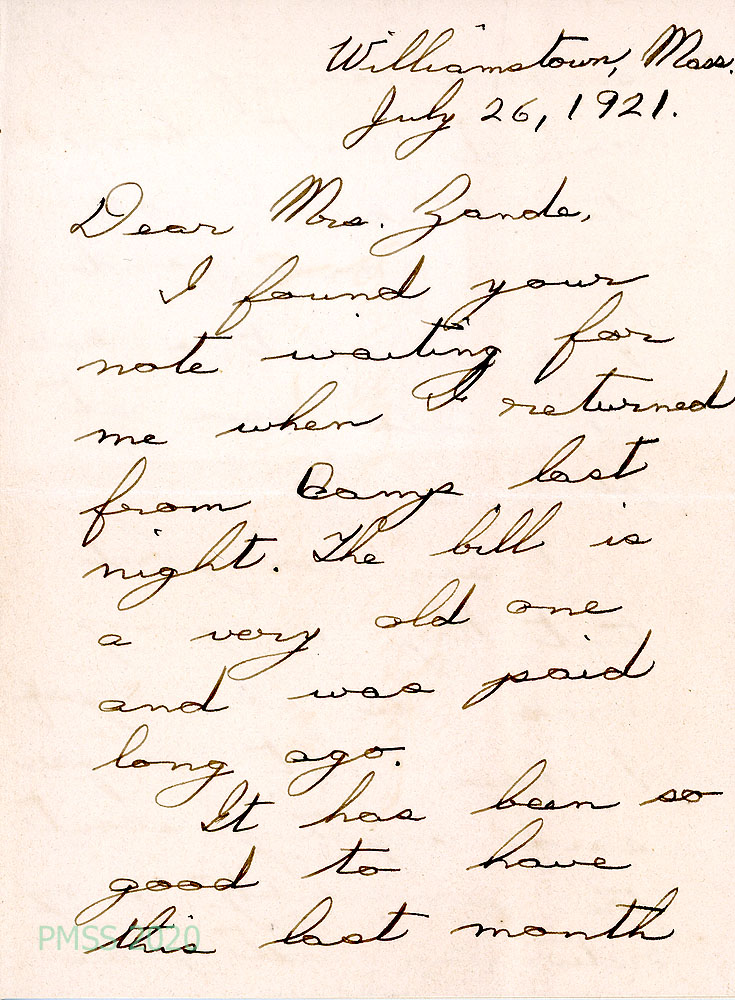 Williamstown, Mass.
July 26, 1921.
Dear Mrs. Zande,
I found your
note waiting for
me when I returned
from Camp last
night. The bill is
a very old one
and was paid
long ago.
It has been so
good to have
this last month
PMSS 2020